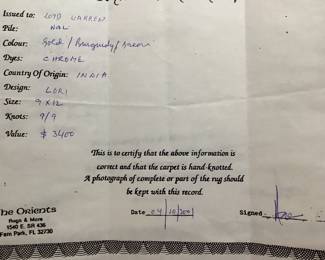 Issued to: LORD WARREN
Pile: WOL
Colour: Gold / Burgundy / Green
Dyes: CHROME
Country Of Origin: INDIA
Design: LORI
Size: 9 X 12
Knots: 9/9
Value: $ 3400
This is to certify that the above information is
correct and that the carpet is hand-knotted.
A photograph of complete or part of the rug should
be kept with this record.
he Orients
Rugs & More
1540 E. SR 436
Fern Park, FL 32730
Date 04/10/2001
Signed